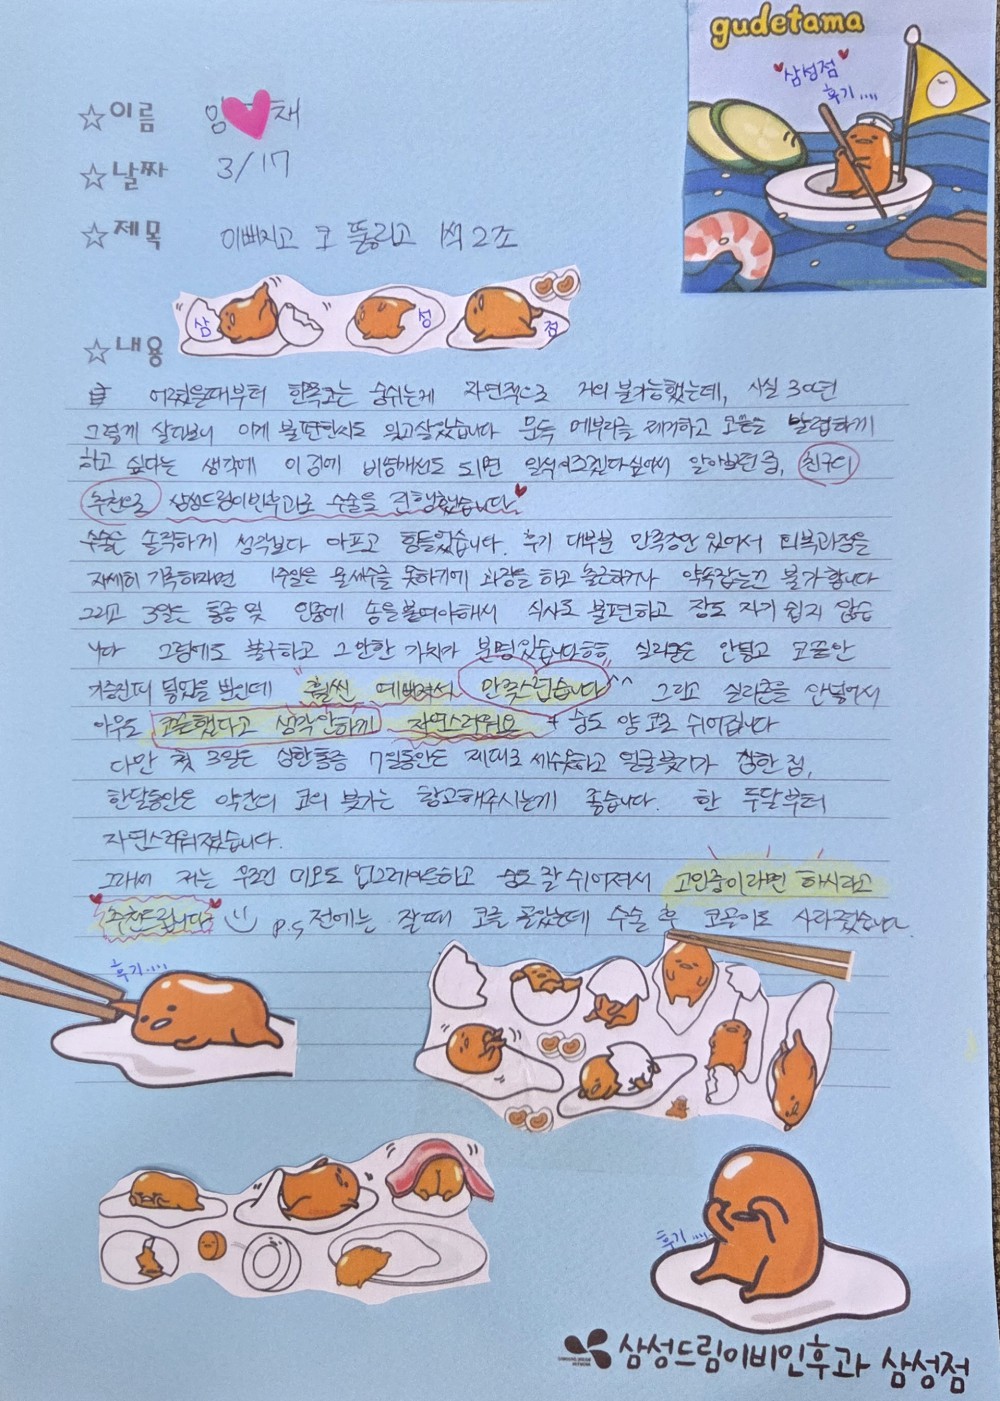 gudetama
삼성점
후기....
☆이름 임 채
☆날짜 3/17
☆제목 이뻐지고 코 뚫리고 1석2조
삼 성 점
☆내용
어렸을때부터 한쪽코는 숨쉬는게 자연적으로 거의 불가능했는데, 사실 30년
그렇게 살다보니 이게 불편한지도 잊고살았습니다 문득 메부리를 제거하고 코끝을 발렵하게
하고 싶다는 생각에 이 김에 비중에서도 되면 일석이조겠다싶어서 알아보던 중, 친구의
추천으로 삼성드림이비인후과로 수술을 진행했습니다.
수술은 솔직하게 생각보다 아프고 힘들었습니다. 후기 대부분 만족감만 있어서 회복과정을
자세히 기록하자면 1주일은 물세수를 못하기에 화장을 하고 출근하거나 약속잡는건 불가합니다
그리고 3일은 통증 및 인중에 솜을붙여야해서 식사도 불편하고 잠도 자기 쉽지 않습
니다 그럼에도 불구하고 그만한 가치가 분명있습니다ㅎㅎ 실리콘은 안넣고 코끝만
귀연골이 넣었을 뿐인데 "훨씬 예뻐져서 만족스럽습니다"^^ 그리고 실리콘을 안넣어서
아무도 코끝했다고 생각안하게 자연스러워요 + 숨도 양 코로 쉬어집니다
다만 첫 3일은 심한통증 7일동안은 제대로 세수못하고 얼굴붓기가 심한 점,
한달동안은 약간의 코의 붓기는 참고해주시는게 좋습니다. 한 두달부터
자연스러워졌습니다.
그래서 저는 우선 미모도 업그레이드하고 숨도 잘 쉬어져서 고민중이라면 하시라고
추천드립니다 p.s 전에는 잘때 코를 골았는데 수술 후 코골이도 사라졌습니다.
후기....
후기....
삼성드림이비인후과 삼성점